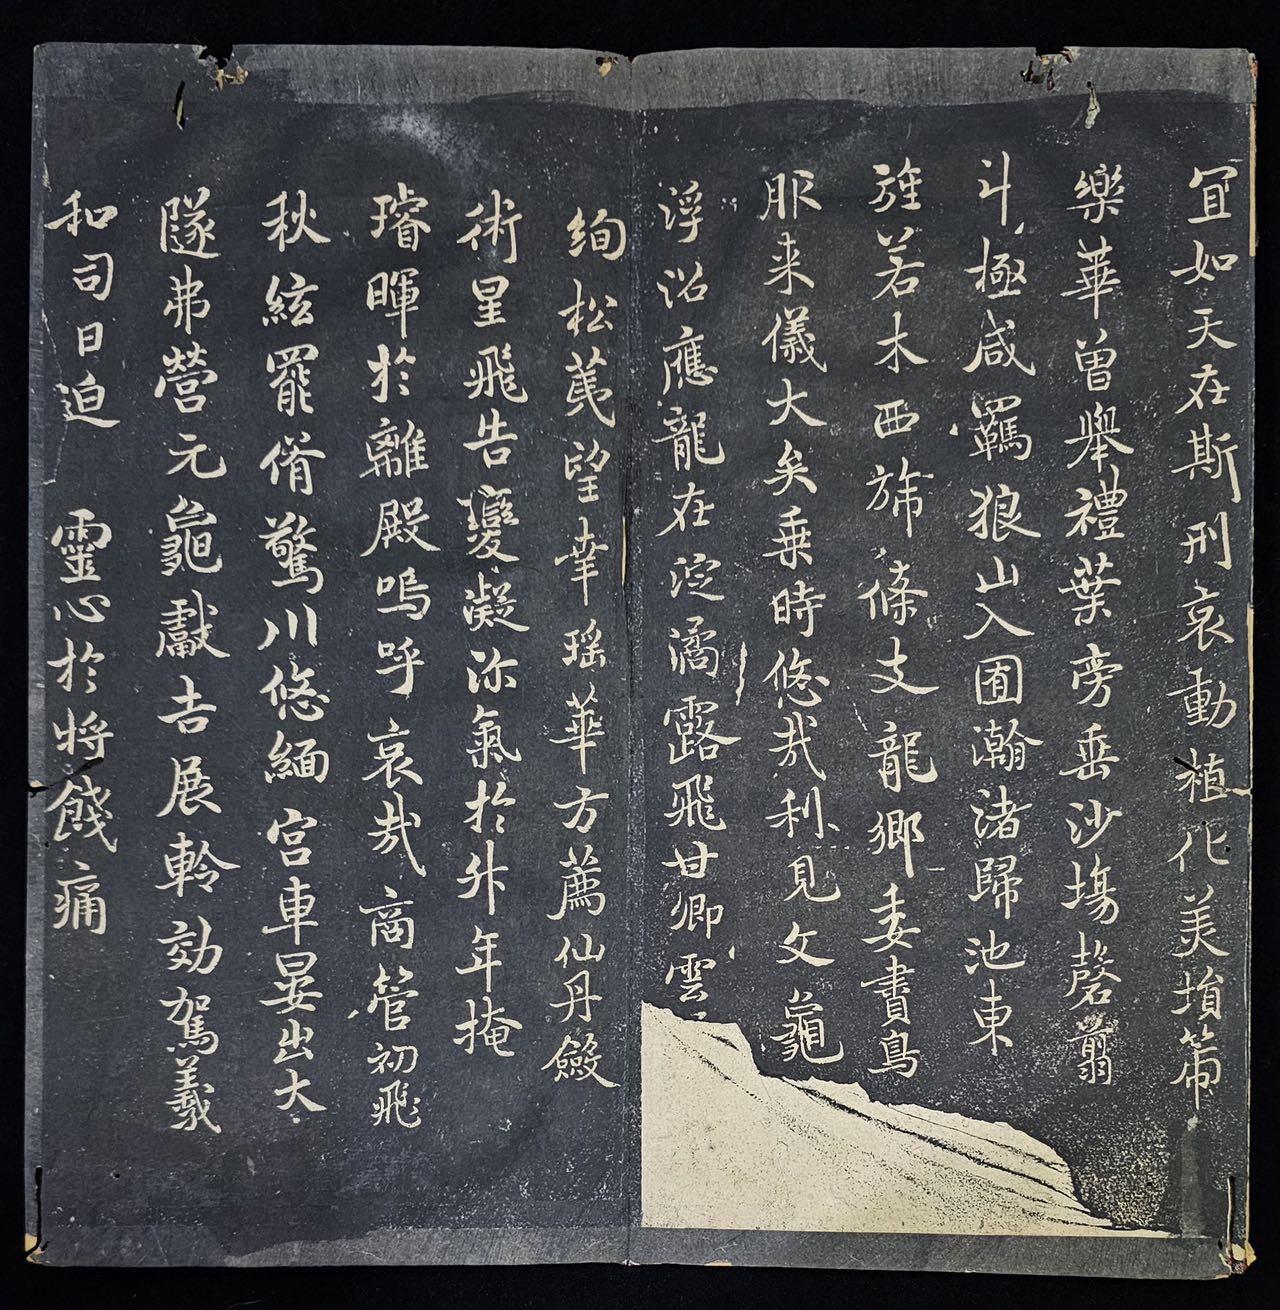 宜如天在斯刑哀動植化美塤
樂華曾舉禮葉旁垂沙塲磬翦
斗極咸羈狼山入囿瀚渚歸池東
旌若木西旆條支龍鄉委書鳥
服来儀大矣乗時悠哉利見文龜
浮沼應龍在淀潏露飛甘卿雲
絢松茂望幸瑤華方薦仙丹斂
術星飛告變凝沴氣於升年掩
璿暉於離殿嗚呼哀哉商管初飛
秋絃罷脩驚川悠緬宮車晏出大
隧弗營元龜獻吉展軨効駕羲
和司日迫靈心於將餞痛